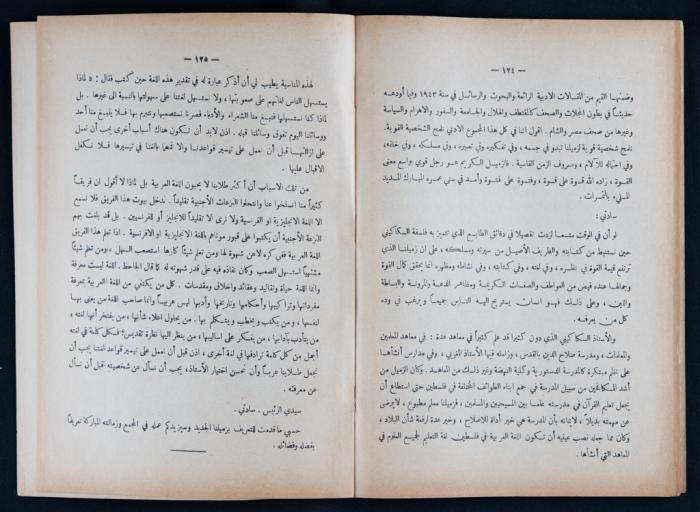 — ١٢٤ —
وضمنها القيم من المقالات الادبية الرائعة والبحوث والرسائل في سنة ١٩٤٣ وفيها أودعه
حديثاً في بطون المجلات والصحف كالمقتطف والهلال والجامعة والسفور والاهرام والسياسة
وغيرها من صحف مصر والشام . اقول اننا في كل هذا المجموع الادبي نلمح الشخصية القوية.
نلمح شخصية قوية لزميلنا تبدو في جسمه ، وفي تفكيره وفي تعبيره ، وفي مسلكه ، وفي
وفي احتماله للآلام ، وصروف الزمن القاسية . فالزميل الكريم هو رجل قوي بواسع معنى
القوة ، زاده الله قوة على قوة ، وفتوة على فتوة وأمد في سني عمره المبارك المديد
المليء بالثمرات .
سادتي :
لو أن في الوقت متسعاً لزدت تفصيلا في دقائق الطابع الذي تتميز به فلسفة السكاكيني
حين تستنبط من كتابته والطريف الأصيل من سيرته ومسلكه ، على ان زميلنا الذي
ترتفع قيمة القوة في نظره ، وفي لغته ، وفي كتابته ، وفي نشاطه ومظهره انما يحقق كمال القوة
وجمالها عنده فيض من العواطف والصفات الكريمة ومظاهر الدعة والمرونة والبساطة
والدين ، وعلى ذلك فهو انسان يستريح اليه الناس جميعاً ويرغب في وده
كل من يعرفه .
والأستاذ السكاكيني الذي دون كثيراً قد علم كثيراً في معاهد عدة : في معاهد المعلمين
والمعلمات ، ومدرسة صلاح الدين بالقدس ، وزامله فيها الأستاذ المغربي ، وفي مدارس أنشأها
على نظم مبتكرة كالمدرسة الدستورية وكلية النهضة وغير ذلك من المعاهد . وكان الزميل من
أشد المكافحين من سبيل المدرسة في جمع ابناء الطوائف المختلفة في فلسطين حتى استطاع أن
يجعل تعليم القرآن في مدرسته عاماً بين المسيحيين والمسلمين ، فزميلنا معلم مطبوع ، لايرضى
عن مهنته بديلاً ، لايمانه بأن المدرسة هي خير أداة للاصلاح ، وخير عدة لرفعة شأن البلاد ،
وكان مما جعله نصب عينيه أن تكون اللغة العربية في فلسطين لغة التعليم لجميع العلوم في
المعاهد التي أنشأها .
— ١٢٥ —
لهذه المناسبة يطيب لي أن أذكر عبارة له في تقدير هذه اللغة حين كتب فقال : « لماذا
يستسهل الناس لغاتهم على صعوبتها ، ولا نستسهل لغتنا على سهولتها بالنسبة الى غيرها . بل
لماذا كنا نستسهلها فنبغ منا الشعراء والأدباء فصرنا نستصعبها ونتبرم بها فلا ينبغ منا أحد
ووسائلنا اليوم تفوق وسائلنا قبل . اذن لابد أن تكون هناك أسباب أخرى يجب أن نعمل
على ازالتها قبل أن نعمل على تيسير قواعدنا والا فمهما بالغنا في تيسيرها فلا نكفل
الاقبال عليها .
من تلك الاسباب أن أكثر طلابنا لا يحبون اللغة العربية بل لماذا لا أقول ان فريقاً
كثيراً منا انسلخوا عنا وانتحلوا النزعات الأجنبية تقليداً . ندخل بيوت هذا الفريق فلا نسمع
الا اللغة الانجليزية او الفرنسية ولا نرى الا تقليداً للانجليز أو للفرنسيين . بل قد بلغت بهم
النزعة الأجنبية أن يكتبوا على قبور موتاهم باللغة الانجليزية او الافرنسية . اذا تعلم هذا الفريق
اللغة العربية ففي كره لاعن شهوة لها ومن تعلم شيئاً كارهاً استصعب السهل ، ومن تعلم شيئاً
مشتهياً استسهل الصعب وكان نفاذه فيه على قدر شهوته له كما قال الجاحظ . اللغة ليست معرفة
وانما اللغة حياة وتقاليد وعقائد واخلاق ومقدسات . كل من يكتفي من اللغة العربية بمعرفة
مفرداتها وتراكيبها وأحكامها وتاريخها وأدبها ليس عربيساً وانما صاحب اللغة من يعنى بها
لنفسها ، ومن يكتب ويخطب ويتكلم بها . من يحاول اعلاء شأنها ، من يفتخر أنها لغته ،
من يتأدب بآدابها ، من يفكر على اساليبها ، من ينظر اليها نظرة تقديس ؛ فكل كلمة في لغته
أجمل من كل كلمة ترادفها في لغة أخرى ، اذن قبل أن نعمل على تيسير قواعد لغتنا يجب أن
نجعل طلابنا عرباً وأن نحسن اختيار الأستاذ، يجب أن نسأل عن شخصيته قبل أن نسأل
عن معرفته .
سيدي الرئيس . سادتي .
حسبي ما قدمت للتعريف بزميلنا الجديد وسيزيدكم عمله في المجمع وزمالته المباركة تعريفاً
بفضله وفضائله .